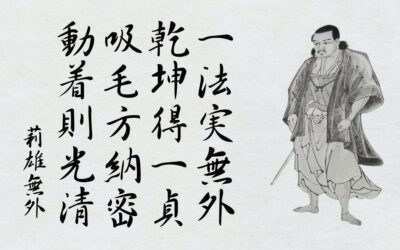 一法実無外
乾坤得一貞
吸毛方納密
動着則光清
莉雄無外